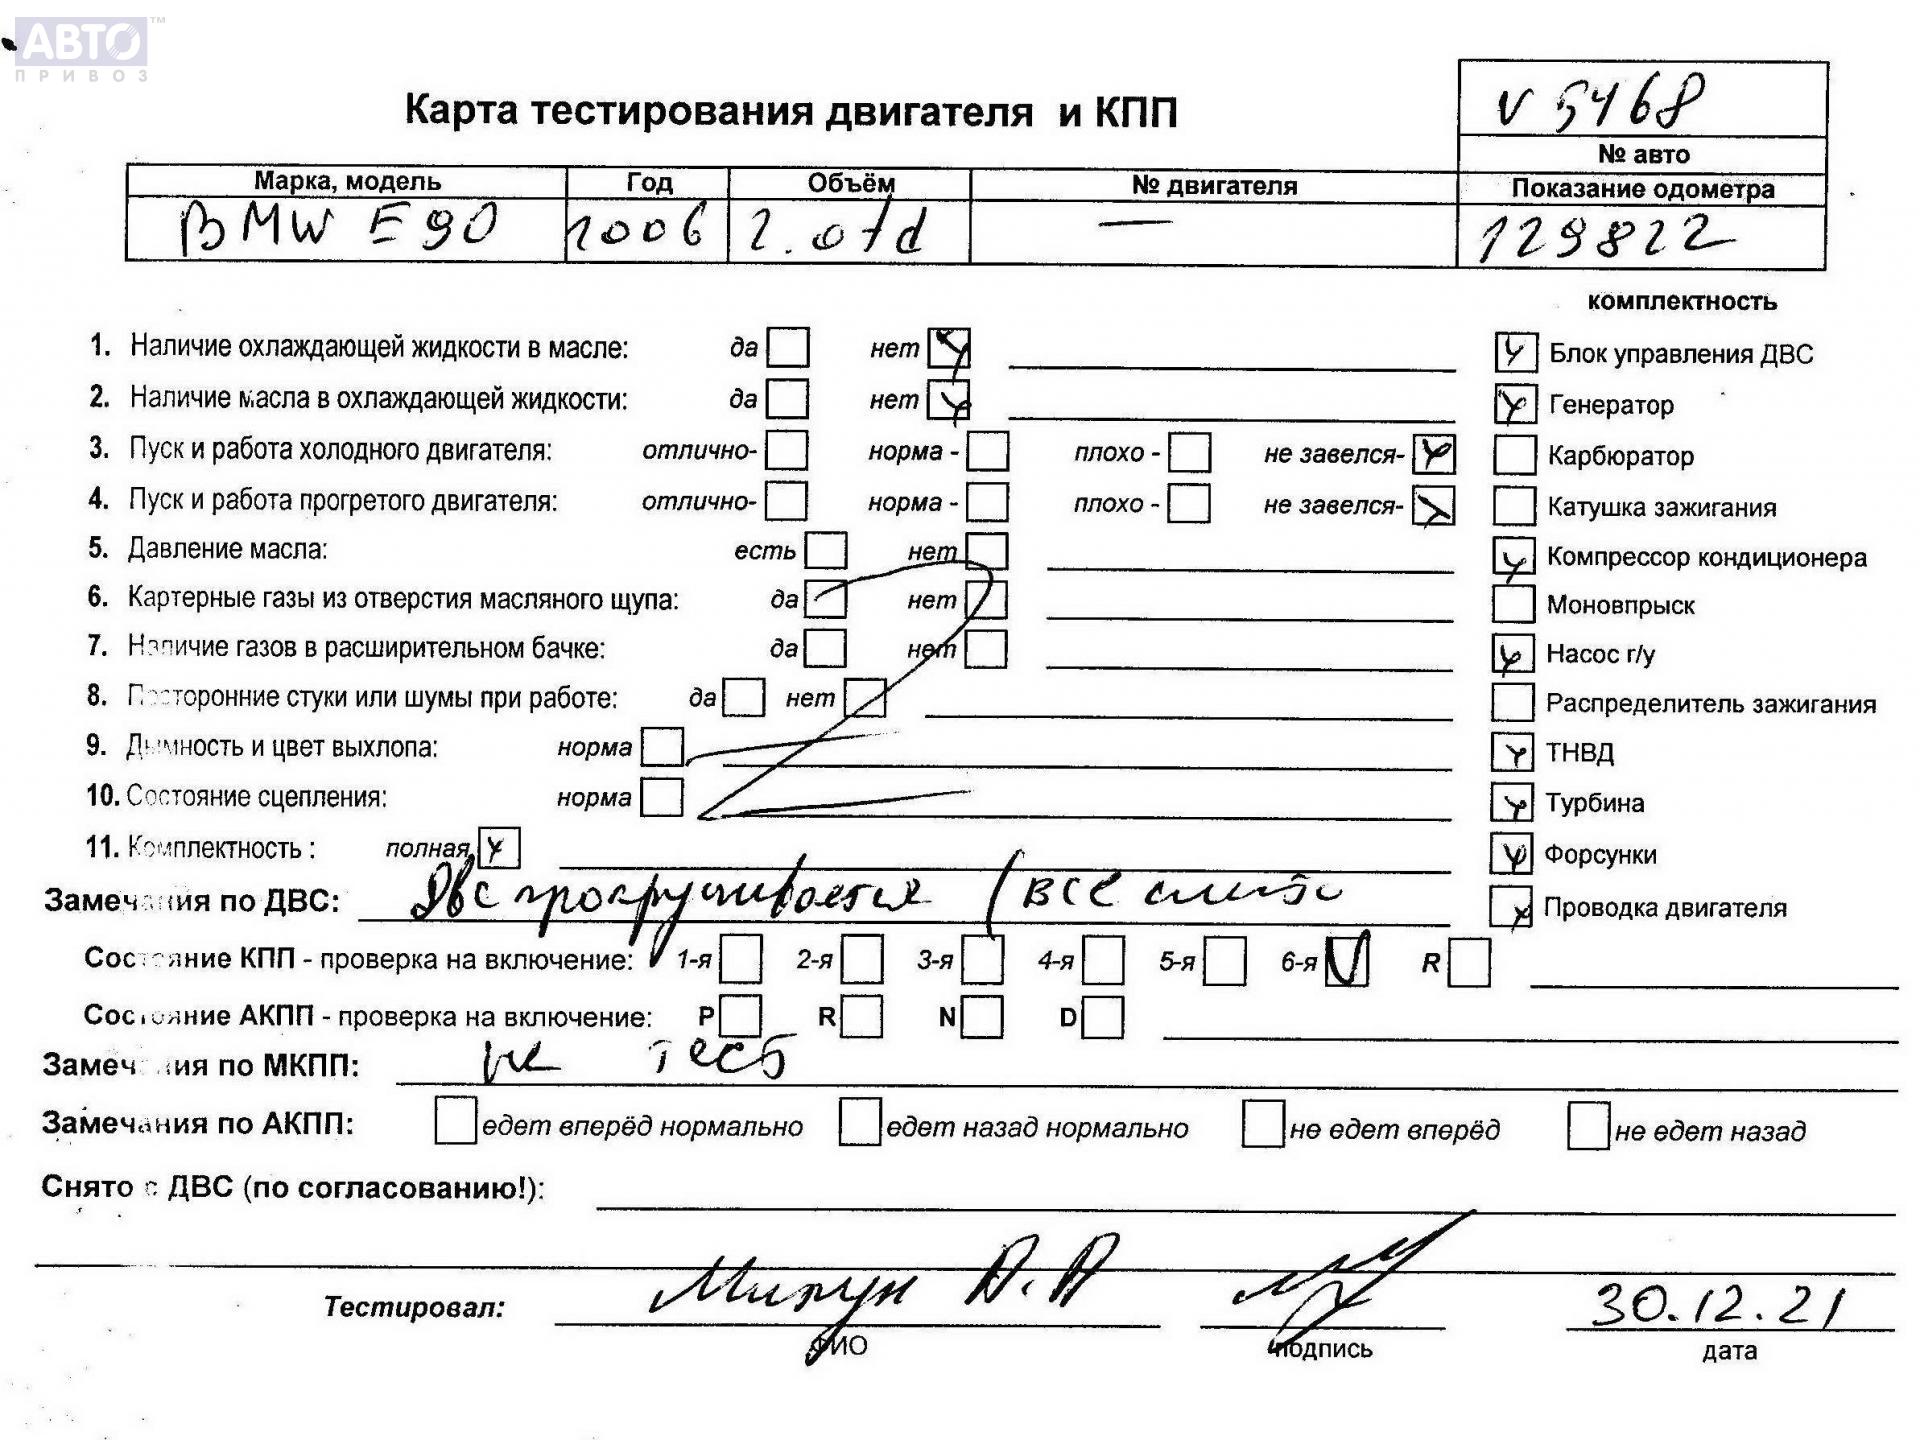 АВТО™
ПРИВОЗ
Карта тестирования двигателя и КПП
v 5468
№ авто
Марка, модель Год Объём № двигателя Показание одометра
BMW E90 2006 2.0td — 129822
комплектность
1. Наличие охлаждающей жидкости в масле: да нет Блок управления ДВС
2. Наличие масла в охлаждающей жидкости: да нет Генератор
3. Пуск и работа холодного двигателя: отлично- норма - плохо - не завелся- Карбюратор
4. Пуск и работа прогретого двигателя: отлично- норма - плохо - не завелся- Катушка зажигания
5. Давление масла: есть нет Компрессор кондиционера
6. Картерные газы из отверстия масляного щупа: да нет Моновпрыск
7. Наличие газов в расширительном бачке: да нет Насос г/у
8. Посторонние стуки или шумы при работе: да нет Распределитель зажигания
9. Дымность и цвет выхлопа: норма ТНВД
10. Состояние сцепления: норма Турбина
11. Комплектность : полная Форсунки
Замечания по ДВС: Двс прокручивается (все слито Проводка двигателя
Состояние КПП - проверка на включение: 1-я 2-я 3-я 4-я 5-я 6-я R
Состояние АКПП - проверка на включение: P R N D
Замечания по МКПП: не тест
Замечания по АКПП: едет вперёд нормально едет назад нормально не едет вперёд не едет назад
Снято с ДВС (по согласованию!):
Тестировал: А.А 30.12.21
ФИО подпись дата